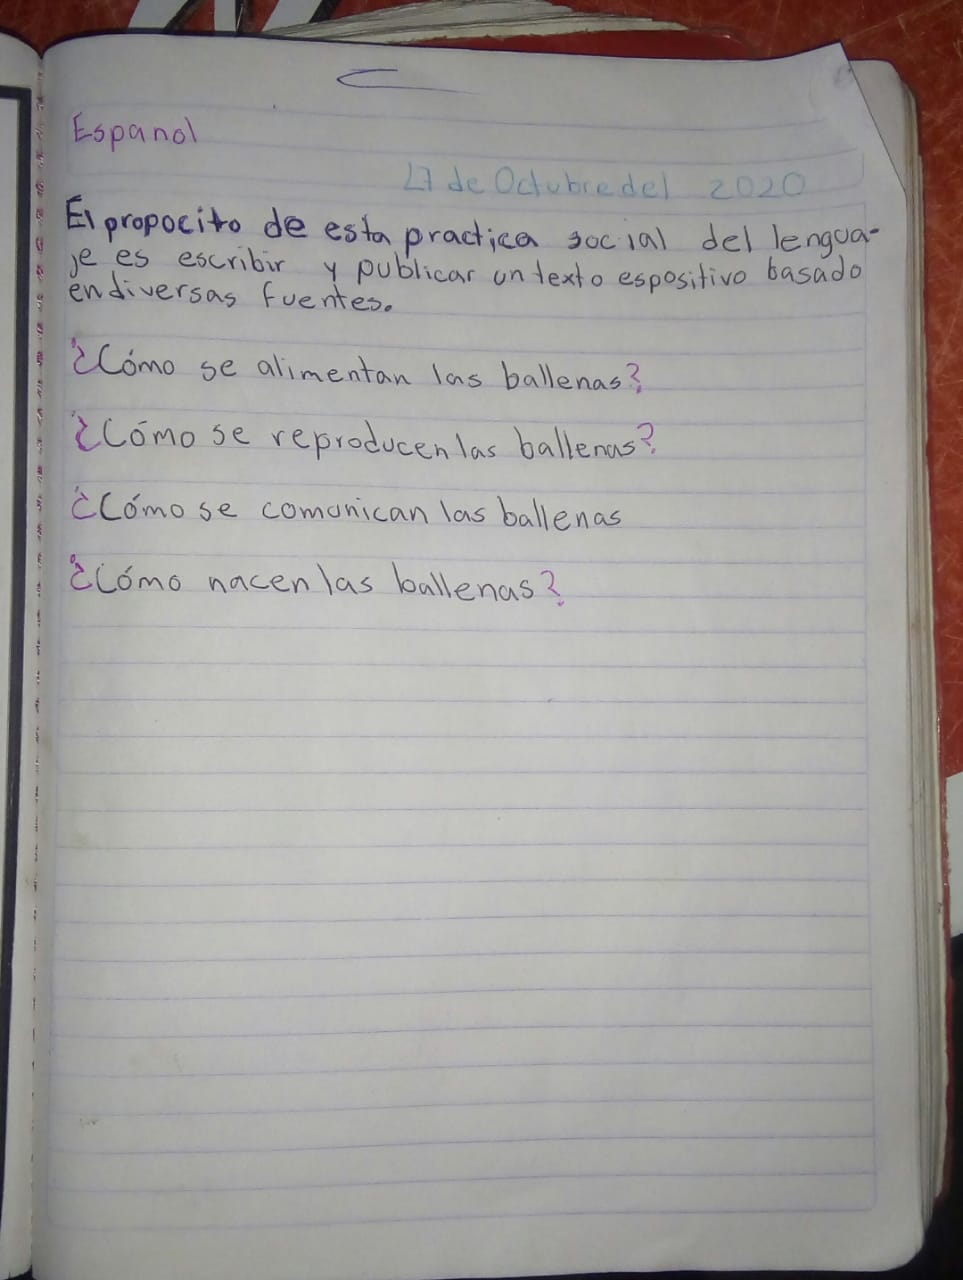 Espanol
27 de Octubre del 2020
El propocito de esta practica social del lengua-
je es escribir y publicar un texto espositivo basado
en diversas fuentes.
¿Cómo se alimentan las ballenas?
¿Cómo se reproducen las ballenas?
¿Cómo se comunican las ballenas
¿Cómo nacen las ballenas?